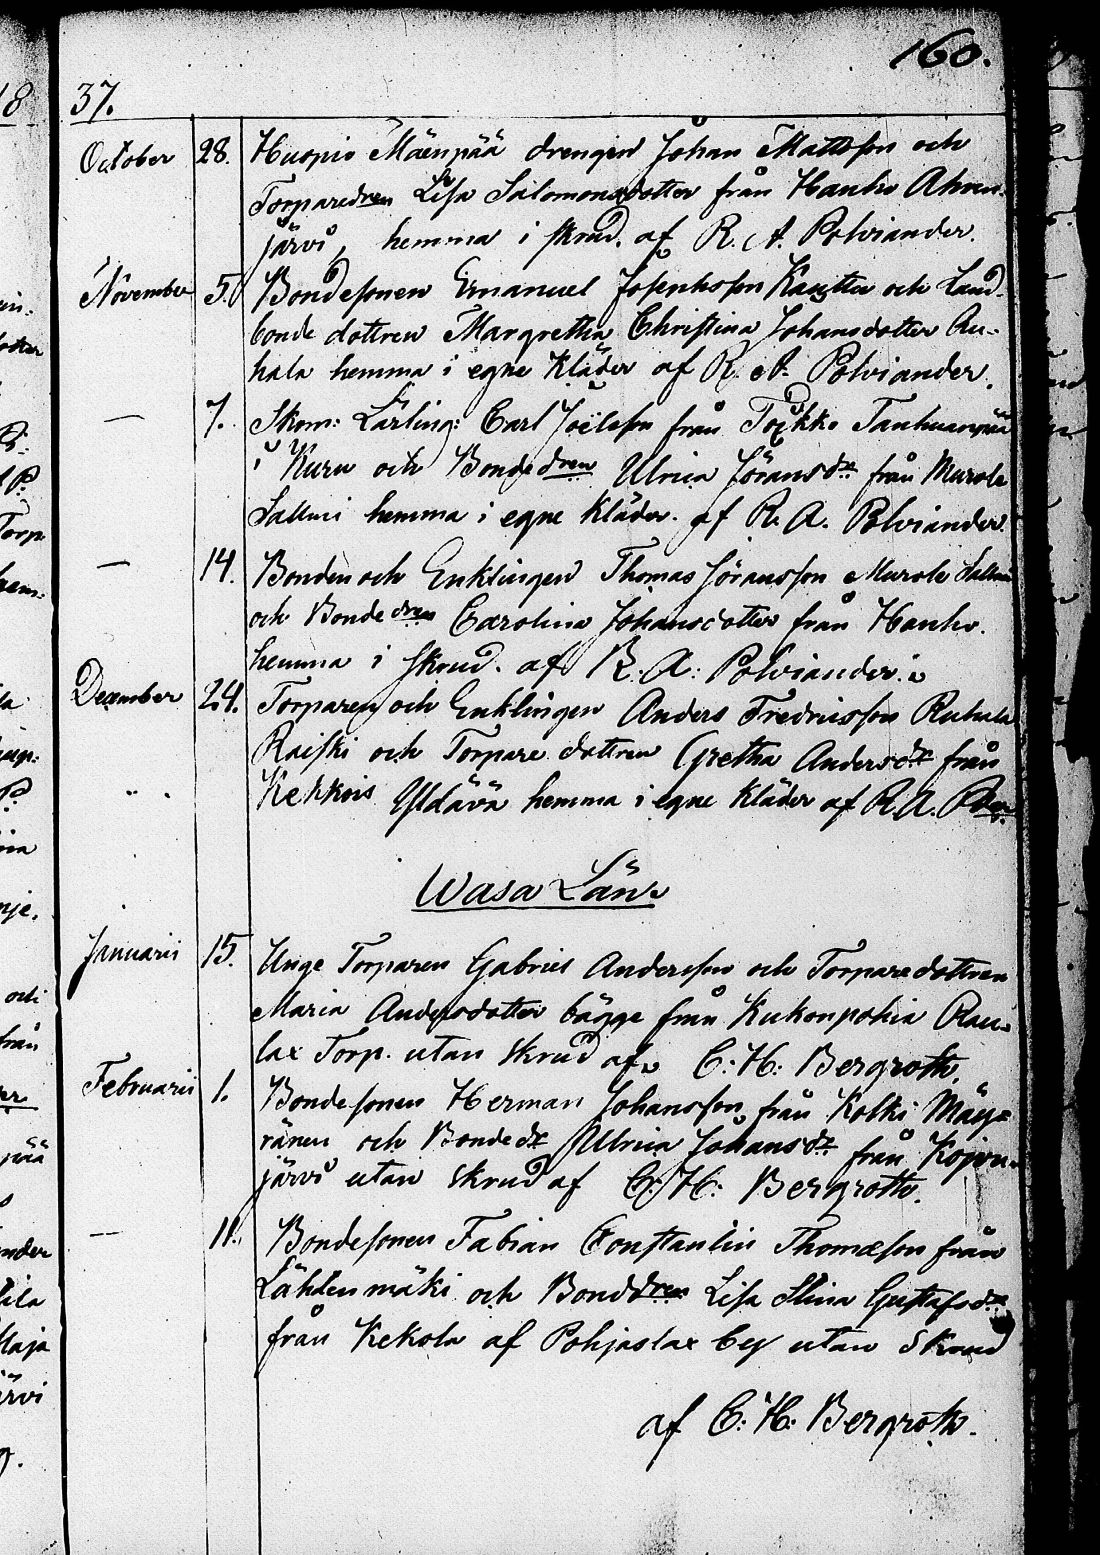 160.
18 37.
October 28. Huopio Mäenpää drengen Johan Mattsson och
Torparedren Lisa Salomonsdotter från Hanho Ahven-
järvi, hemma i skrud. af R. A. Polviander.
November 5. Bondesonen Emanuel Josephsson Kantta och Land-
bonde dottren Margretha Christina Johansdotter Au-
hala hemma i egne kläder af R. A. Polviander.
— 7. Skom: Lärling: Carl Joëlsson från Poikko Tanhuanpää
i Kuru och Bondedren Ulrica Jöransdr från Murole
Sallmi hemma i egne kläder. af R. A. Polviander.
— 14. Bonden och Enklingen Thomas Jöransson Murole Sallmi
och Bondedren Carolina Johansdotter från Hanho.
hemma i skrud. af R. A. Polviander.
December 24. Torparen och Enklingen Anders Fredricsson Ruhala
Raiski och Torpare dottren Gretha Andersdr från
Kekkois Yldävä hemma i egne kläder af R. A. Pder.
Wasa Län.
Januarii 15. Unge Torparen Gabriel Andersson och Torparedottren
Maria Andersdotter bägge från Kukonpohia Rau-
lax Torp. utan skrud af C: H: Bergroth.
Februarii 1. Bondesonen Herman Johansson från Kolki Mäye-
ränen och Bondedr Ulrica Johansdr från Kojvu-
järvi utan skrud af C: H: Bergroth.
— 11. Bondesonen Fabian Constantin Thomasson från
Lähdenmäki och Bonddren Lisa Stina Gustafsdr
från Kekola af Pohjaslax by utan skrud
af C: H: Bergroth.